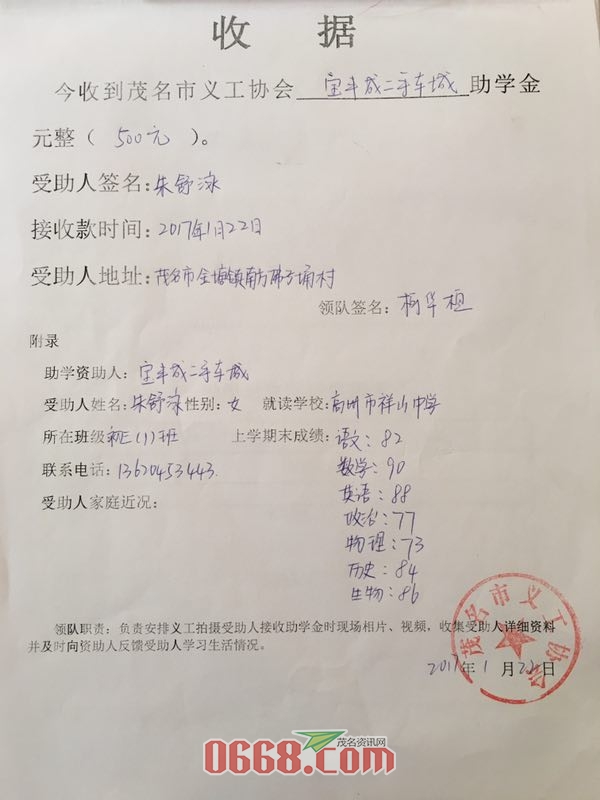 收 据
今收到茂名市义工协会 宝丰成二手车城 助学金
元整（ 500元 ）。
受助人签名：朱舒泳
接收款时间：2017年1月22日
受助人地址：茂名市金塘镇南方 子埇村
领队签名：柯华桓
附录
助学资助人：宝丰成二手车城
受助人姓名：朱舒泳性别：女 就读学校：高州市祥山中学
所在班级初二（1）班 上学期末成绩：语文：82
联系电话：13620453443. 数学：90
受助人家庭近况： 英语：88
政治：77
物理：73
历史：84
生物：86
领队职责：负责安排义工拍摄受助人接收助学金时现场相片、视频，收集受助人详细资料
并及时向资助人反馈受助人学习生活情况。
茂名市义工协会
2017年1月22日
茂名资讯网
0668.com